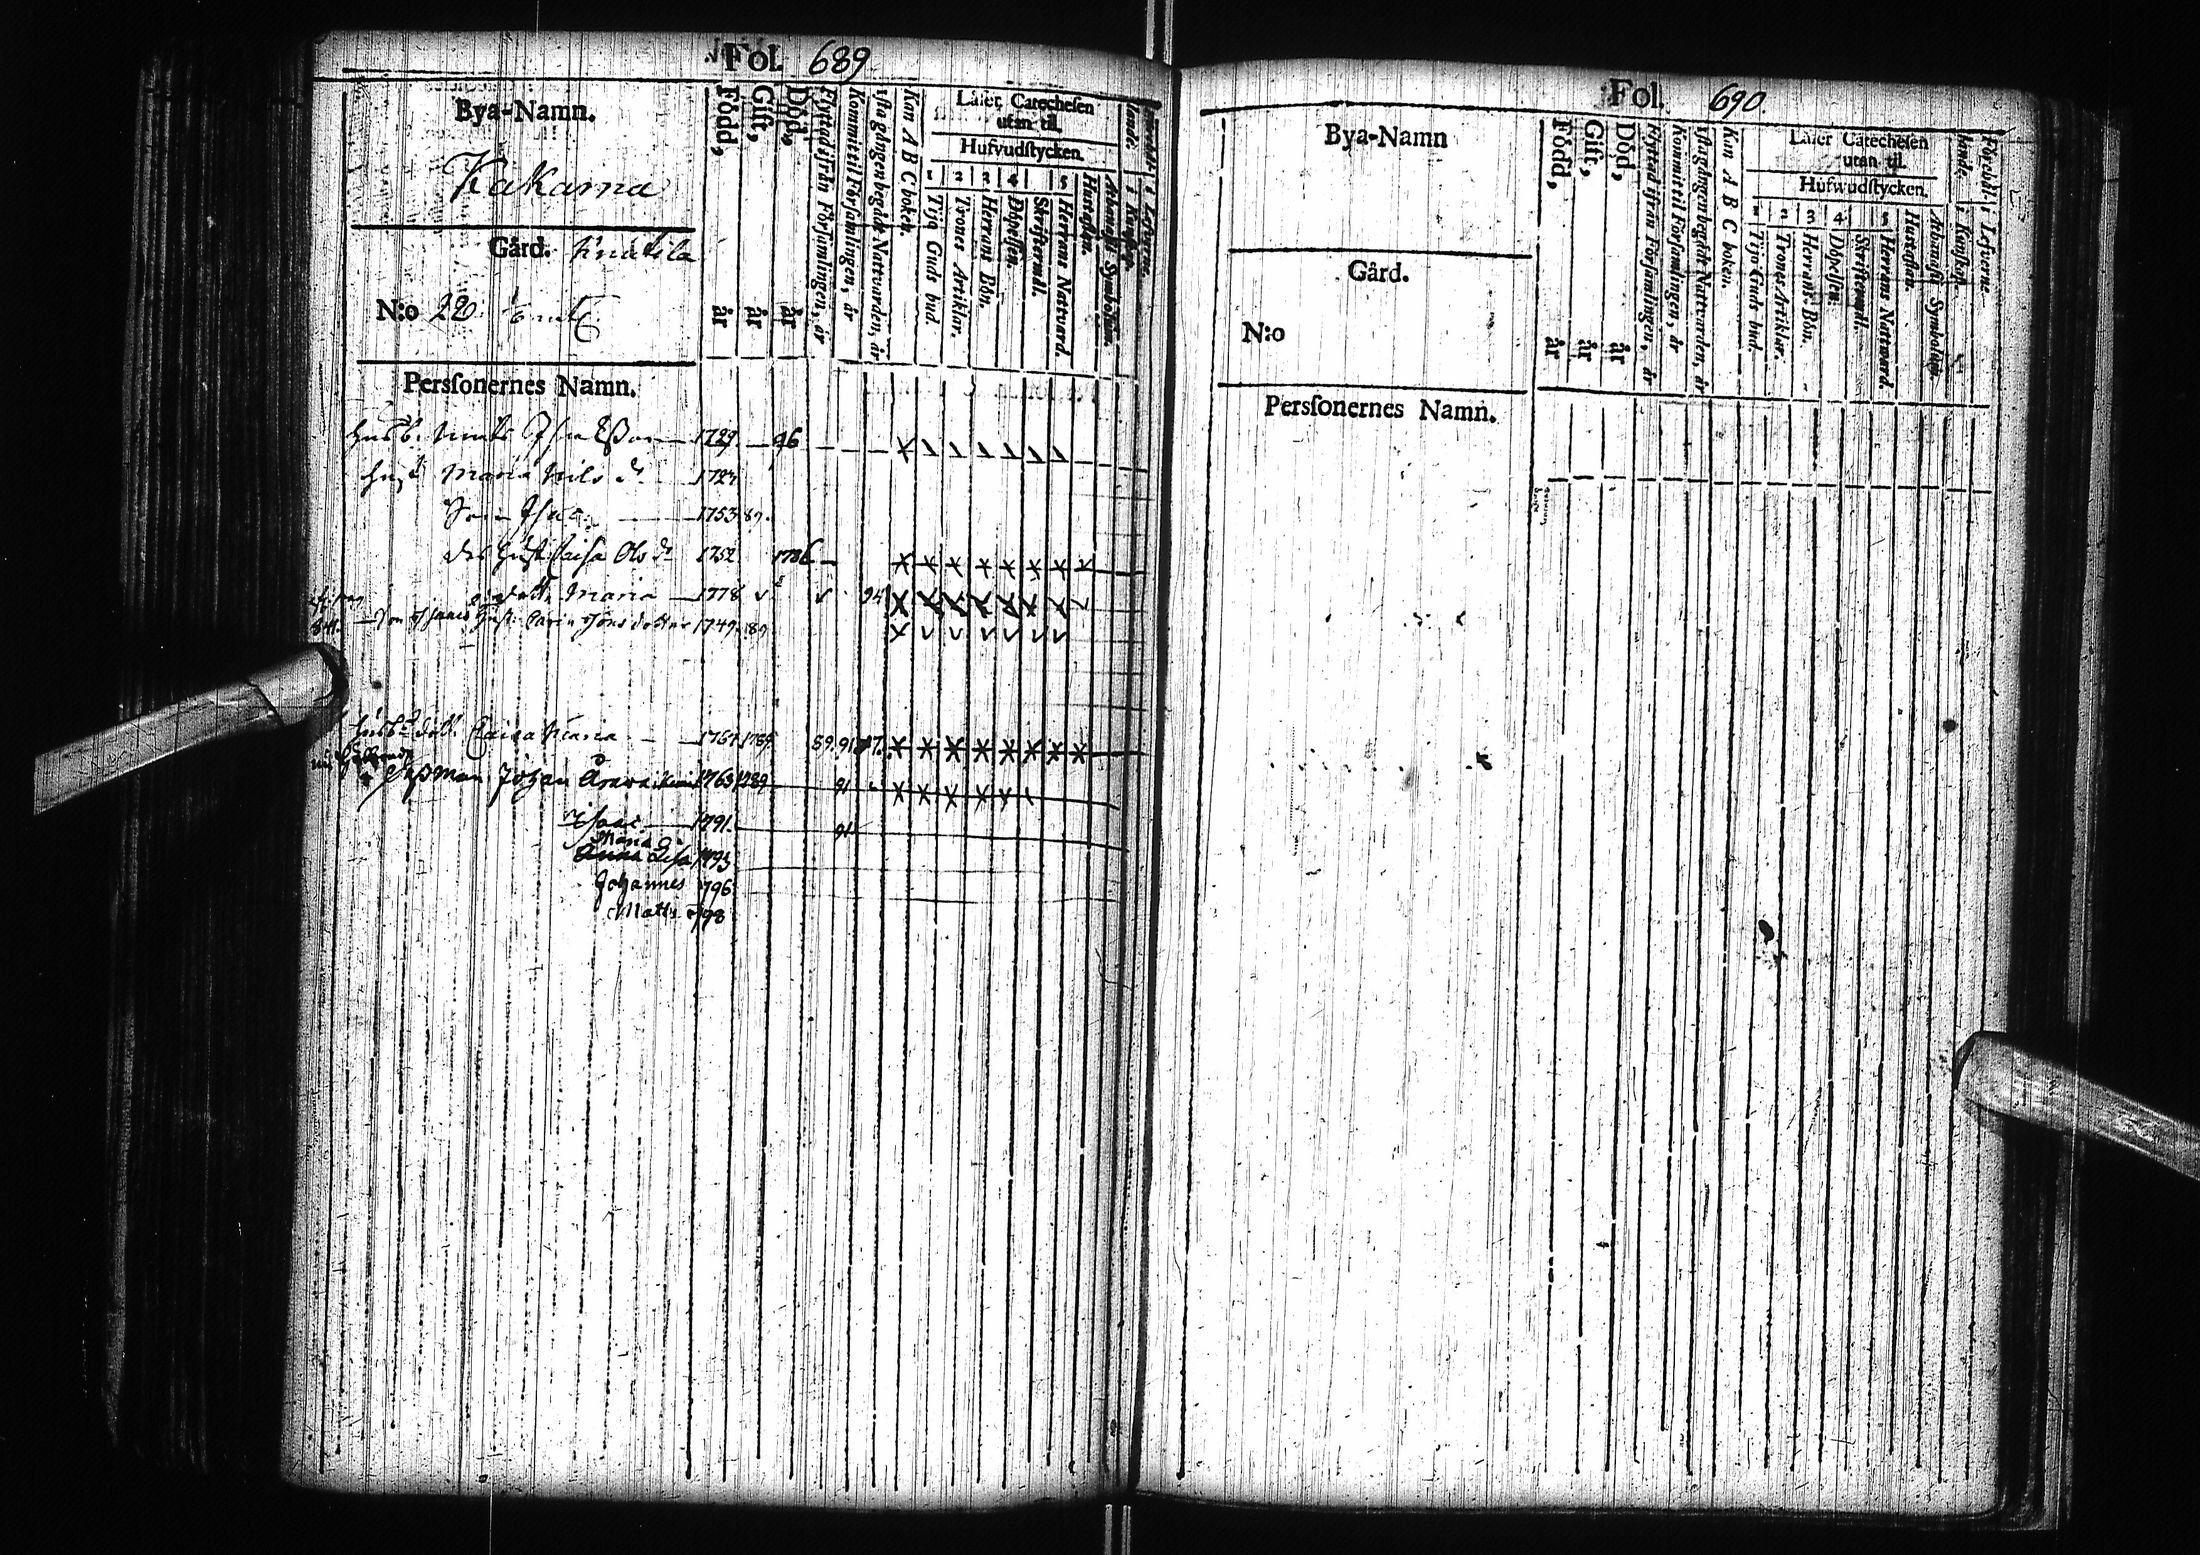 Fol. 689
Bya-Namn.
Kakarna
Gård. Knutila
N:o 22
Född, år
Gift, år
Död, år
Flyttad ifrån Församlingen, år
Kommit til Församlingen, år
1sta gången begådt Nattvarden, år
Kan A B C boken.
Läser Catechesen utan til.
Hufvudstycken.
1 2 3 4 5
Tijo Guds bud.
Trones Artiklar.
Herrans Bön.
Döpelsen.
Skriftermål.
Herrans Nattvard.
Hustaflan.
Athanasii Symbolum.
Personernes Namn.
Husb. Isacsson 1729 96
Hust. Maria Nils dr 1727
Son Isac 1753 89
des Hust. Caisa Ols dr 1752 1786
Maria 1778 94
Son Isaacs Hust. Carin Jöns dotter 1749 89
Husb. dott. Caisa Maria 1767 1789 89. 91
Johan 1763 1789 91
Isaac 1791 91
Maria
Anna Lisa 1793
Johannes 796
Matts 798
Fol. 690
Bya-Namn
Gård.
N:o
Född, år
Gift, år
Död, år
Flyttad ifrån Församlingen, år
Kommit til Församlingen, år
1sta gången begådt Nattvarden, år
Kan A B C boken.
Läser Catechesen utan til.
Hufwudstycken.
1 2 3 4 5
Tijo Guds bud.
Trones Artiklar.
Herrans Bön.
Döpelsen.
Skriftermål.
Herrans Nattward.
Hustaflan.
Athanasii Symbolum.
Förehåll. i Lefverne
i Kunskap.
Personernes Namn.